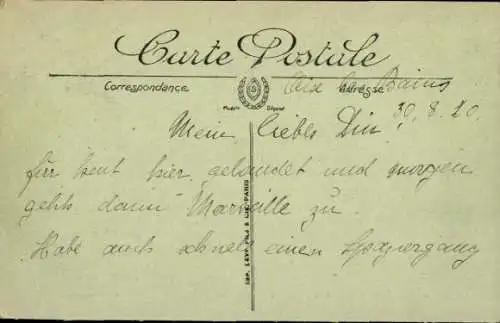 Carte Postale
Correspondance
Adresse
Modèle Déposé
Aix les Bains
30.8.20.
Mein liebes
für heut hier gelandet und morgen
gehts dann Marseille zu.
Habe auch schnell einen Spaziergang
IMP. LEVY FILS & CIE. PARIS